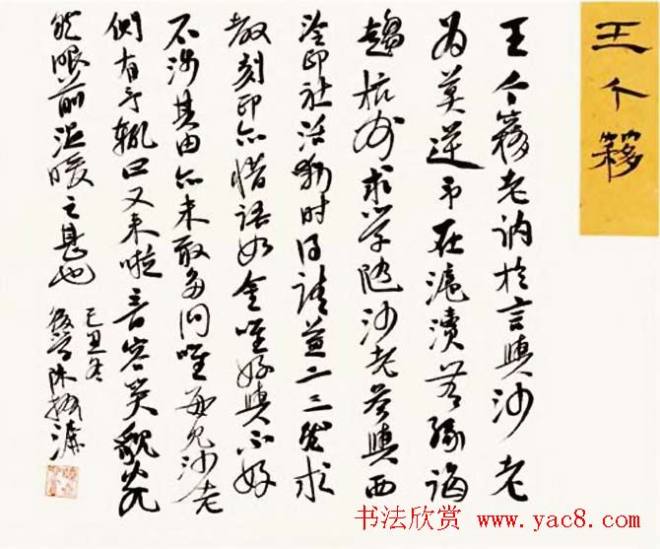 王个簃
王个簃老讷于言与沙老
为莫逆予在沪渎无缘诲
趋杭州求学随沙老参与西
泠印社活动时得请益一二然求
教刻印亦惜语如金唯好与不好
不涉其由亦未敢多问唯每见沙老
侧有予辄曰又来啦音容笑貌宛
然眼前温暖之甚也
己丑冬
后学陈振濂
书法欣赏 www.yac8.com